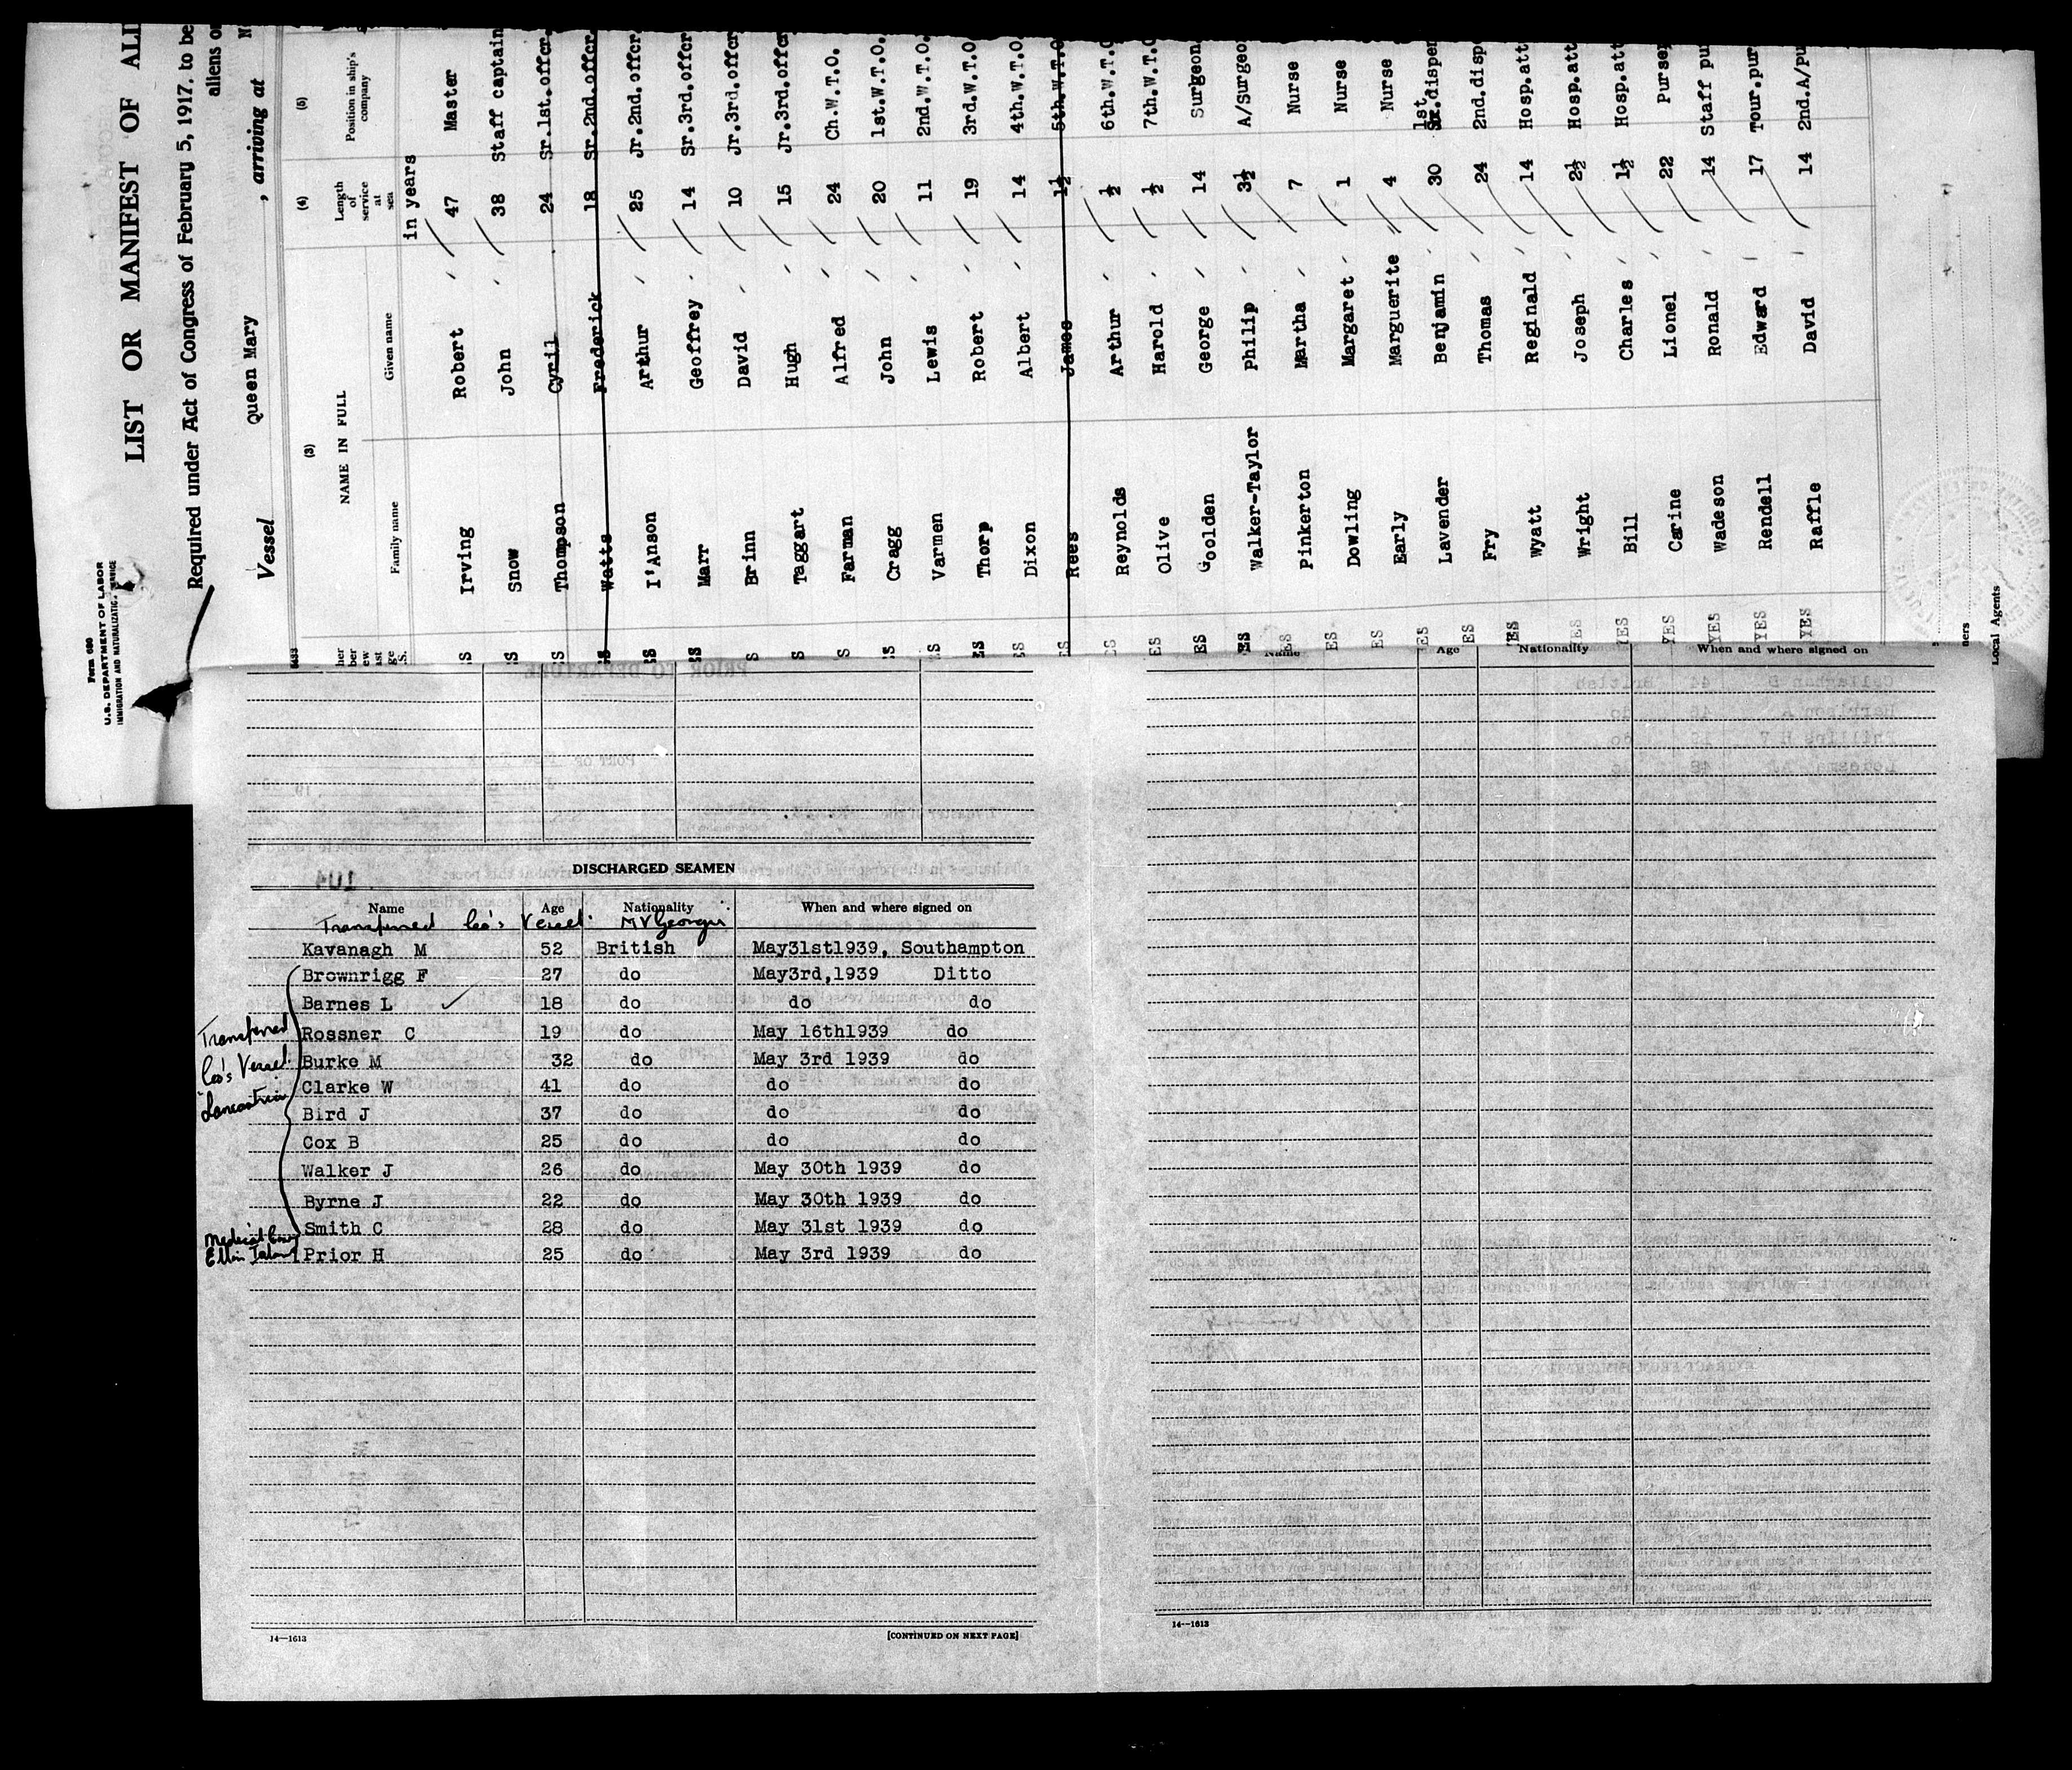 Form 680
U.S. DEPARTMENT OF LABOR
IMMIGRATION AND NATURALIZATION SERVICE
LIST OR MANIFEST OF
Required under Act of Congress of February 5, 1917, to be
aliens
Vessel Queen Mary , arriving at
(3) (4) (5)
NAME IN FULL Length of service at sea Position in ship's company
Family name Given name
in years
Irving Robert 47 Master
Snow John 38 Staff captain
Thompson Cyril 24 Sr.1st.offcr.
Watts Frederick 18 Sr.2nd.offcr.
I'Anson Arthur 25 Jr.2nd.offcr.
Marr Geoffrey 14 Sr.3rd.offcr
Brinn David 10 Jr.3rd.offcr
Taggart Hugh 15 Jr.3rd.offcr
Farman Alfred 24 Ch.W.T.O.
Cragg John 20 1st.W.T.O.
Varmen Lewis 11 2nd.W.T.O.
Thorp Robert 19 3rd.W.T.O
Dixon Albert 14 4th.W.T.O
Rees James 1½ 5th.W.T.O
Reynolds Arthur ½ 6th.W.T.O
Olive Harold ½ 7th.W.T.O
Goolden George 14 Surgeon
Walker-Taylor Philip 3½ A/Surgeo
Pinkerton Martha 7 Nurse
Dowling Margaret 1 Nurse
Early Marguerite 4 Nurse
Lavender Benjamin 30 1st dispen
Fry Thomas 24 2nd.disp
Wyatt Reginald 14 Hosp.att
Wright Joseph 2½ Hosp.att
Bill Charles 1½ Hosp.att
Carine Lionel 22 Purser
YES Wadeson Ronald 14 Staff pur
YES Rendell Edward 17 Tour.pur
YES Raffle David 14 2nd.A/Pu
Local Agents
DISCHARGED SEAMEN
Name Age Nationality When and where signed on
Transferred Co's Vessel: MV Georgic
Kavanagh M 52 British May31st1939, Southampton
Brownrigg F 27 do May3rd,1939 Ditto
Barnes L 18 do do do
Rossner C 19 do May 16th1939 do
Burke M 32 do May 3rd 1939 do
Clarke W 41 do do do
Bird J 37 do do do
Cox B 25 do do do
Walker J 26 do May 30th 1939 do
Byrne J 22 do May 30th 1939 do
Smith C 28 do May 31st 1939 do
Prior H 25 do May 3rd 1939 do
Transferred
Co's Vessel:
Lancastria
Medical
Ellis Island
14—1613 [CONTINUED ON NEXT PAGE]
Name Age Nationality When and where signed on
14—1613